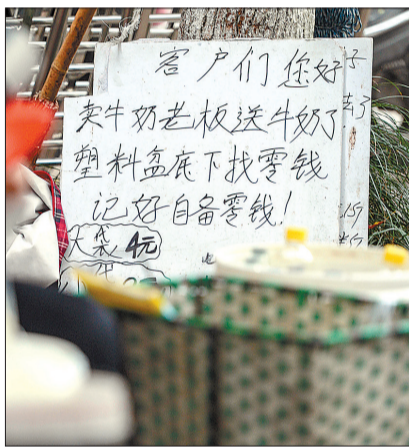 客户们您好
卖牛奶老板送牛奶了
塑料盆底下找零钱
记好自备零钱!
大袋4元